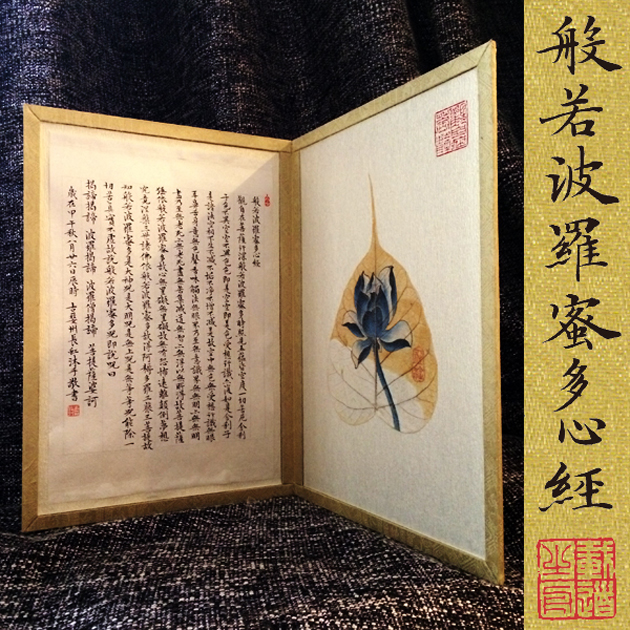 般若波羅蜜多心經
觀自在菩薩行深般若波羅蜜多時照見五蘊皆空度一切苦厄舍利
子色不異空空不異色色即是空空即是色受想行識亦復如是舍利子
是諸法空相不生不滅不垢不淨不增不減是故空中無色無受想行識無眼
耳鼻舌身意無色聲香味觸法無眼界乃至無意識界無無明亦無無明
盡乃至無老死亦無老死盡無苦集滅道無智亦無得以無所得故菩提薩
埵依般若波羅蜜多故心無罣礙無罣礙故無有恐怖遠離顛倒夢想
究竟涅槃三世諸佛依般若波羅蜜多故得阿耨多羅三藐三菩提故
知般若波羅蜜多是大神咒是大明咒是無上咒是無等等咒能除一
切苦真實不虛故說般若波羅蜜多咒即說咒曰
揭諦揭諦 波羅揭諦 波羅僧揭諦 菩提薩婆訶
歲在甲午秋八月廿六日辰時 州長和沐手敬書
般若波羅蜜多心經